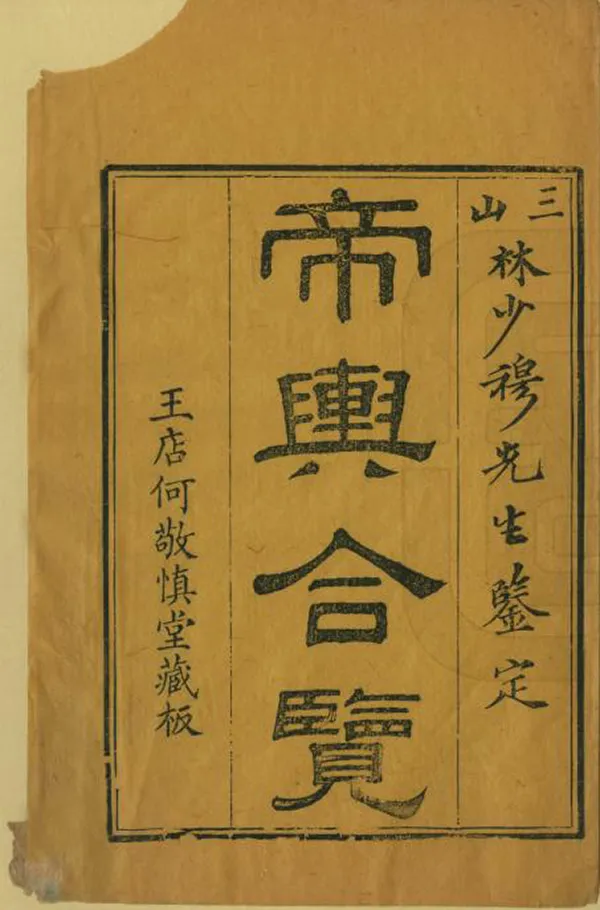 三山
林少穆先生鑒定
帝輿合覽
王店何敬慎堂藏板